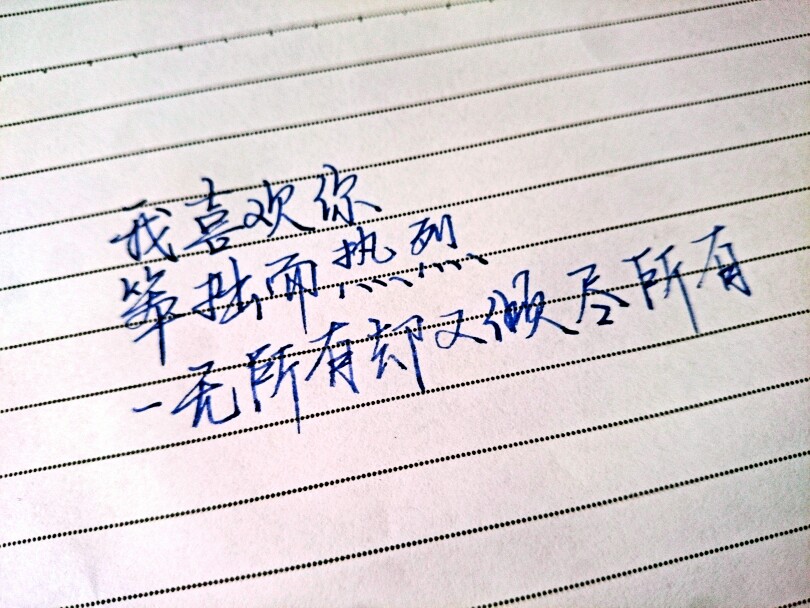 我喜欢你
笨拙而热烈
一无所有却又倾尽所有